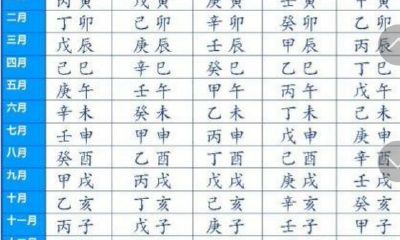 二月 丁卯 己卯 辛卯 癸卯 乙卯
三月 戊辰 庚辰 壬辰 甲辰 丙辰
四月 己巳 辛巳 癸巳 乙巳 丁巳
五月 庚午 壬午 甲午 丙午 戊午
六月 辛未 癸未 乙未 丁未 己未
七月 壬申 甲申 丙申 戊申 庚申
八月 癸酉 乙酉 丁酉 己酉 辛酉
九月 甲戌 丙戌 戊戌 庚戌 壬戌
十月 乙亥 丁亥 己亥 辛亥 癸亥
十一月 丙子 戊子 庚子 壬子 甲子